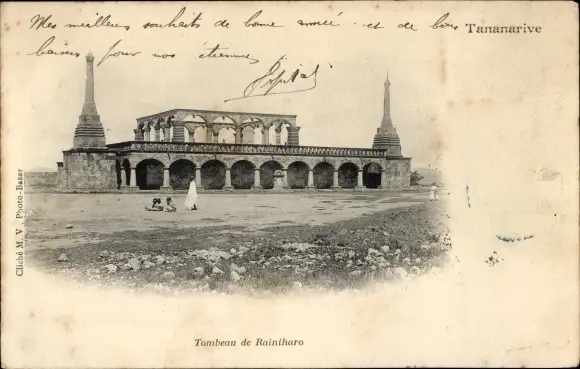 Mes meilleurs souhaits de bonne année et de bons
Tananarive
baisers pour nos étrennes
Cliché M. V. Photo-Bazar
Tombeau de Raintharo